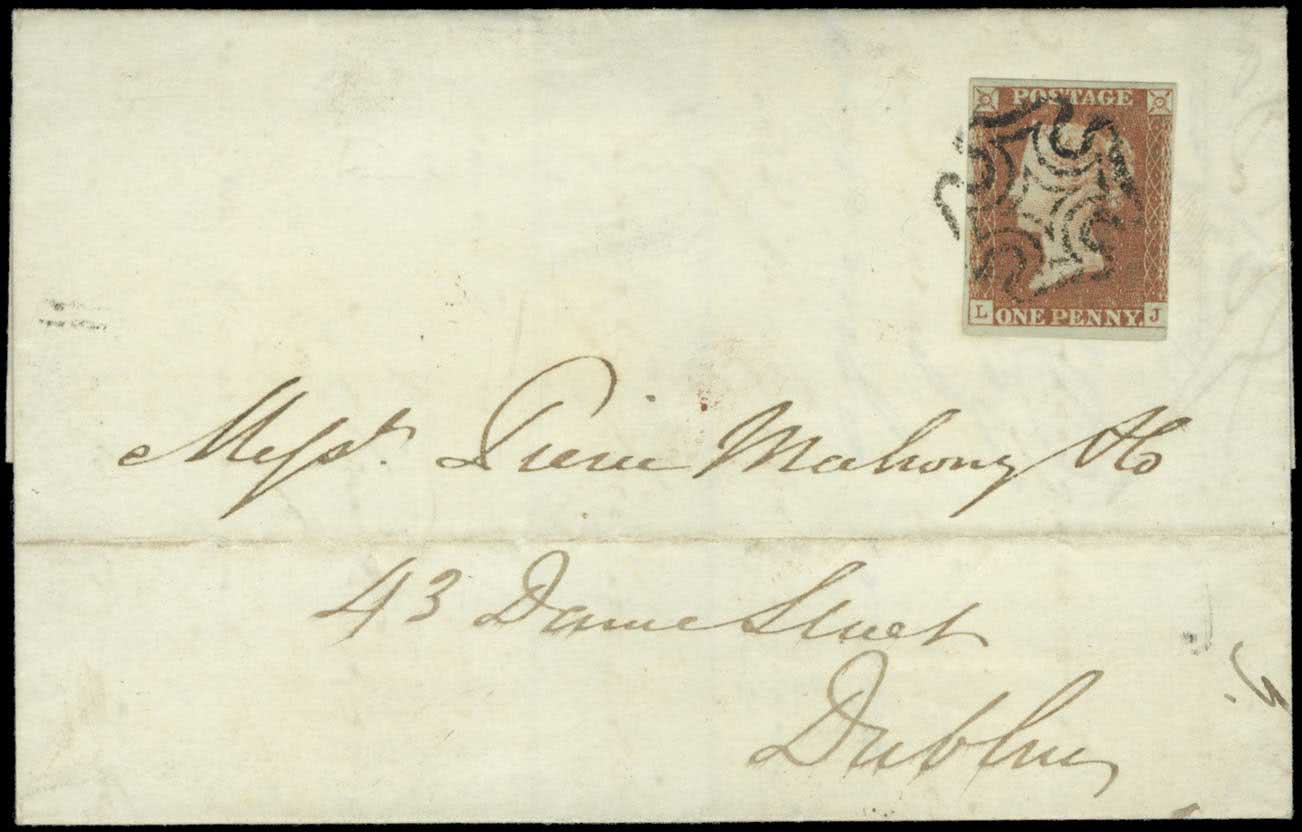 POSTAGE
L ONE PENNY. J
Messrs. Pierce Mahony & Co
43 Dame Street
Dublin